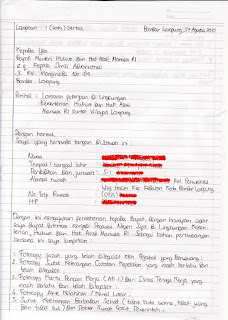 Lampiran : 1 (Satu) berkas Bandar Lampung, 27 Agustus 2010
Kepada Yth
Bapak Menteri Hukum Dan Hak Asasi Manusia RI
c.q. Kepala Divisi Administrasi
Jl. RW Monginsidi No. 184
Bandar Lampung
Perihal : Lamaran pekerjaan Di Lingkungan
Kementerian Hukum Dan Hak Asasi
Manusia RI Kantor Wilayah Lampung
Dengan hormat,
Saya yang bertanda tangan di bawah ini :
Nama
Tempat / tanggal lahir
Pendidikan Dan jurusan : S-1
Alamat rumah Kel. Penengahan
Way Halim Kec. Kedaton Kota Bandar Lampung
No. Telp. Rumah : (0721)
HP
Dengan ini mengajukan permohonan kepada Bapak, dengan harapan agar
saya Dapat Diterima menjadi Pegawai Negeri Sipil Di Lingkungan Kemen-
terian Hukum Dan Hak Asasi Manusia RI. Sebagai bahan pertimbangan
bersama ini saya lampirkan :
1. Fotocopy ijazah yang telah dilegalisir oleh Pejabat yang berwenang
2. Fotocopy Surat Keterangan Catatan Kepolisian yang masih berlaku Dan
telah Dilegalisir
3. Fotocopy Kartu Pencari Kerja (AK-1) Dari Dinas Tenaga Kerja yang
masih berlaku Dan telah Dilegalisir
4. Fotocopy Akte Kelahiran / Kenal Lahir
5. Surat Keterangan Berbadan Sehat (tidak buta warna, tidak tuli
Dan tidak bisu) Dari Dokter Rumah Sakit Pemerintah